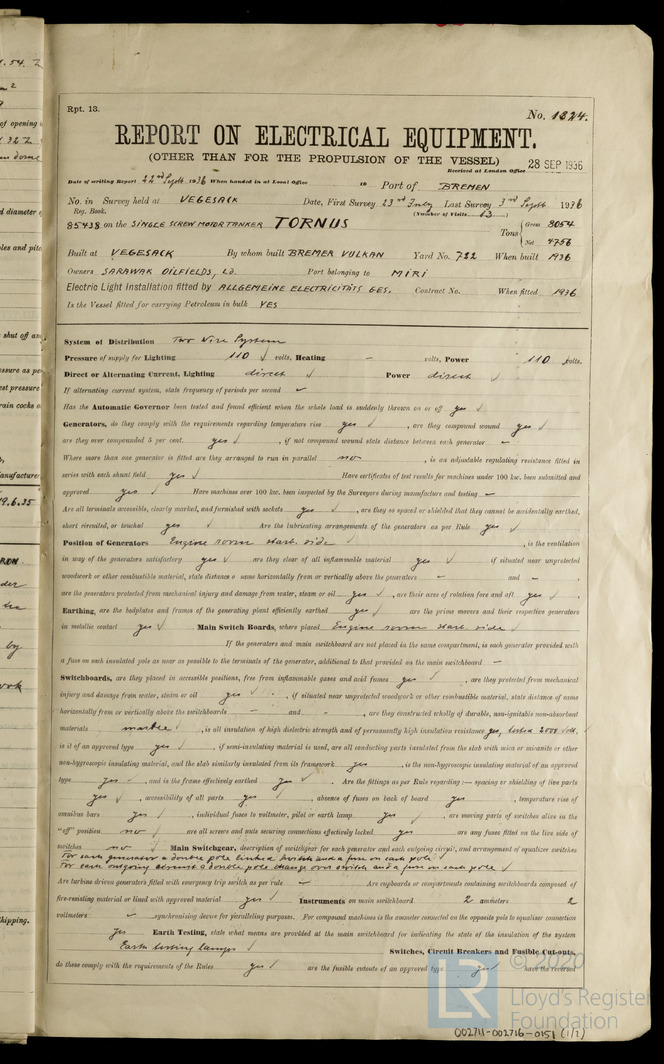 Rpt. 13.
No. 1824.
REPORT ON ELECTRICAL EQUIPMENT.
(OTHER THAN FOR THE PROPULSION OF THE VESSEL)
28 SEP 1936
Received at London Office
Date of writing Report 22nd Sept 1936 When handed in at Local Office 19 Port of BREMEN
No. in Survey held at VEGESACK Date, First Survey 23rd July Last Survey 3rd Sept 1936
Reg. Book. (Number of Visits 13)
85438 on the SINGLE SCREW MOTOR TANKER TORNUS Tons Gross 8054
Net 4756
Built at VEGESACK By whom built BREMER VULKAN Yard No. 722 When built 1936
Owners SARAWAK OILFIELDS, Ld. Port belonging to MIRI
Electric Light Installation fitted by ALLGEMEINE ELECTRICITÄTS GES. Contract No. When fitted 1936
Is the Vessel fitted for carrying Petroleum in bulk YES
System of Distribution Two Wire System
Pressure of supply for Lighting 110 volts, Heating - volts, Power 110 volts.
Direct or Alternating Current, Lighting direct Power direct
If alternating current system, state frequency of periods per second -
Has the Automatic Governor been tested and found efficient when the whole load is suddenly thrown on or off yes
Generators, do they comply with the requirements regarding temperature rise yes, are they compound wound yes
are they over compounded 5 per cent. yes, if not compound wound state distance between each generator -
Where more than one generator is fitted are they arranged to run in parallel no, is an adjustable regulating resistance fitted in
series with each shunt field yes Have certificates of test results for machines under 100 kw. been submitted and
approved yes Have machines over 100 kw. been inspected by the Surveyors during manufacture and testing -
Are all terminals accessible, clearly marked, and furnished with sockets yes, are they so spaced or shielded that they cannot be accidentally earthed,
short circuited, or touched yes Are the lubricating arrangements of the generators as per Rule yes
Position of Generators Engine room starb. side, is the ventilation
in way of the generators satisfactory yes are they clear of all inflammable material yes if situated near unprotected
woodwork or other combustible material, state distance of same horizontally from or vertically above the generators - and -,
are the generators protected from mechanical injury and damage from water, steam or oil yes, are their axes of rotation fore and aft yes
Earthing, are the bedplates and frames of the generating plant efficiently earthed yes are the prime movers and their respective generators
in metallic contact yes Main Switch Boards, where placed Engine room starb. side
If the generators and main switchboard are not placed in the same compartment, is each generator provided with
a fuse on each insulated pole as near as possible to the terminals of the generator, additional to that provided on the main switchboard -
Switchboards, are they placed in accessible positions, free from inflammable gases and acid fumes yes, are they protected from mechanical
injury and damage from water, steam or oil yes, if situated near unprotected woodwork or other combustible material, state distance of same
horizontally from or vertically above the switchboards - and -, are they constructed wholly of durable, non-ignitable non-absorbent
materials marble, is all insulation of high dielectric strength and of permanently high insulation resistance yes, tested 2000 volt.
is it of an approved type yes, if semi-insulating material is used, are all conducting parts insulated from the slab with mica or micanite or other
non-hygroscopic insulating material, and the slab similarly insulated from its framework yes, is the non-hygroscopic insulating material of an approved
type yes, and is the frame effectively earthed yes. Are the fittings as per Rule regarding :— spacing or shielding of live parts
yes, accessibility of all parts yes, absence of fuses on back of board yes, temperature rise of
omnibus bars yes, individual fuses to voltmeter, pilot or earth lamp yes, are moving parts of switches alive in the
"off" position no are all screws and nuts securing connections effectively locked yes are any fuses fitted on the live side of
switches no Main Switchgear, description of switchgear for each generator and each outgoing circuit, and arrangement of equalizer switches
For each generator a double pole linked switch and a fuse on each pole
For each outgoing circuit a double pole change over switch and a fuse on each pole
Are turbine driven generators fitted with emergency trip switch as per rule - Are cupboards or compartments containing switchboards composed of
fire-resisting material or lined with approved material yes Instruments on main switchboard 2 ammeters 2
voltmeters - synchronising device for paralleling purposes. For compound machines is the ammeter connected on the opposite pole to equaliser connection
yes Earth Testing, state what means are provided at the main switchboard for indicating the state of the insulation of the system
Earth testing lamps Switches, Circuit Breakers and Fusible Cut-outs,
do these comply with the requirements of the Rules yes are the fusible cutouts of an approved type yes have the reversed
© 2020
LR
Lloyd's Register
Foundation
002711-002716-0151 (1/2)